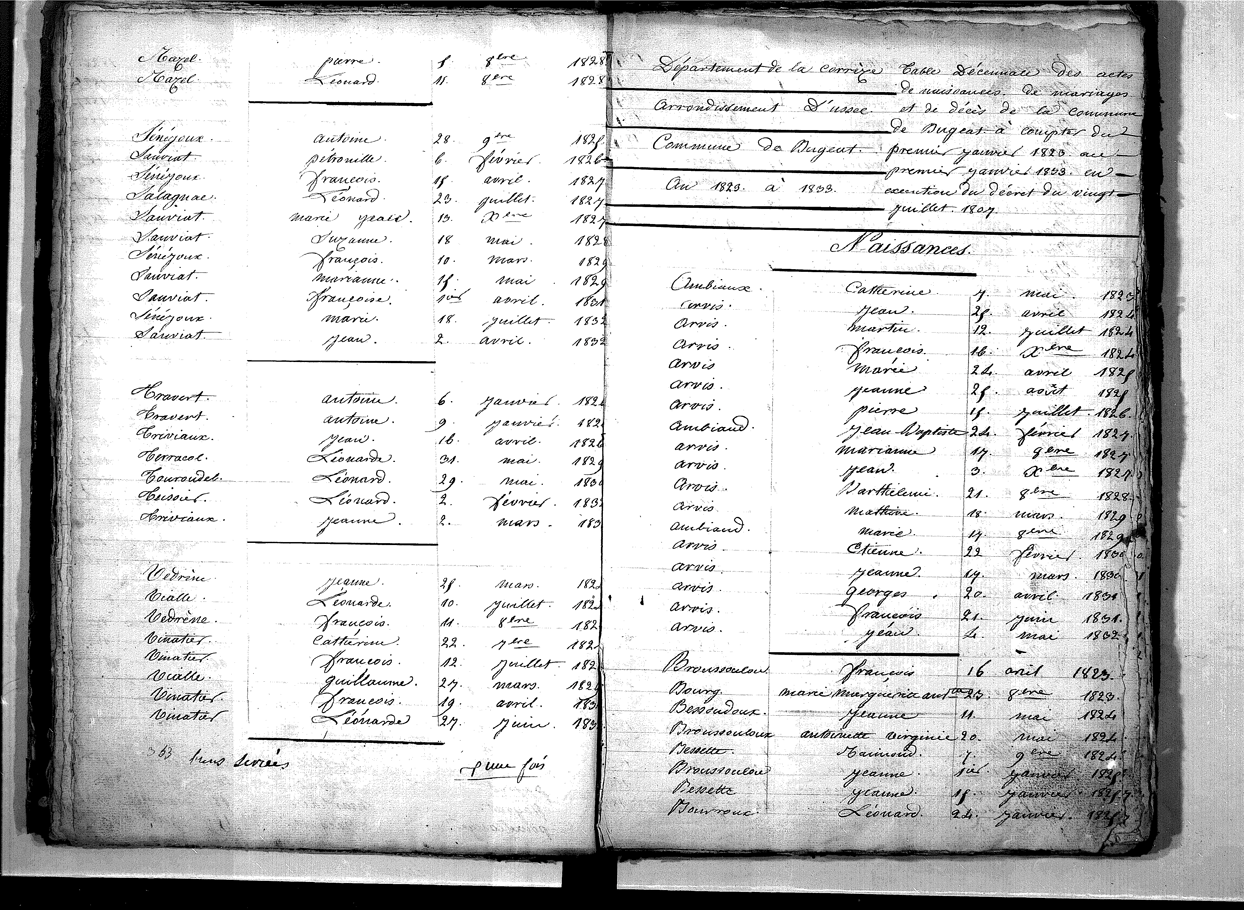 Mazel. pierre. 5 8ère 1828
Mazel Léonard 11 8ère 1828
Sénéjoux. antoine 28. 9ère 1825
Sauviat petronille 6. février. 1826
Sénéjoux. françois. 15 avril. 1827
Salagnac. Léonard. 23 juillet. 1827
Sauviat. marie 13. Xère 1827
Sauviat. Suzanne. 18 mai. 1828
Sénéjoux. françois. 10. mars. 1829
Sauviat. marianne. 15. mai 1829
Sauviat. françoise. 1er avril. 1831
Sénéjoux. marie. 18. juillet. 1832
Sauviat. jean. 2. avril. 1832
Travert. antoine. 6. janvier. 1824
Travert. antoine. 9. janvier. 182
Triviaux. jean. 16. avril. 1826
Terracol. Léonarde. 31. mai. 1829
Touroudel. Léonard. 29. mai. 183
Tessier. Léonard. 2. février. 183
Triviaux. jeanne. 2. mars. 183
Vedrine. jeanne. 25. mars. 182
Vialle. Léonarde. 10. juillet. 182
Vedrène. françois. 11. 8ère 182
Vinatier. Cathérine. 22. 7ère 182
Vinatier. françois. 12. juillet. 182
Vialle. guillaume. 27. mars. 182
Vinatier. françois. 19. avril. 183
Vinatier Léonarde 27. juin. 183
363
p une fois
Département de la corrèze
Arrondissement D'ussel
Commune de Bugeat.
An 1823. à 1833.
Table Décennale des actes
de naissances. de mariages
et de décès de la commune
de Bugeat à compter du
premier janvier 1823. au
premier janvier 1833. en
execution du décret du vingt
juillet. 1807.
Naissances.
Ambiaux. Catherine. 7. mai. 1823
arvis. jean. 25. avril 1824
arvis. martin. 12. juillet 1824
arvis. françois. 16. Xère 1824
arvis marie 24. avril 1825
arvis. jeanne 25. août 1825
arvis. pierre 15. juillet. 1826.
Ambiaud. jean Baptiste 24. février 1827.
arvis. marianne 17. 9ère 1827
arvis. jean 3. Xère 1827
arvis. Barthelemi. 21. 8ère 1828
arvis. mathieu 18. mars. 1829
ambiaud. marie 17. 8ère 1829
arvis. Etienne. 22 février. 1830
arvis. jeanne. 17. mars. 1830
arvis. georges. 20. avril 1831
arvis. françois 21. juin 1831.
arvis. jean. 4. mai 1832
Broussouloux françois 16 avril 1823.
Bourg. marie marguerite 23. 8ère 1823.
Bessoudoux. jeanne 11. mai 1824
Broussouloux antoinette virginie 20. mai 1824.
Bessette. Raimond 7. 9ère 1824
Broussouloux jeanne. 1er janvier 182
Bessette jeanne. 15. janvier. 182
Bourroux. Léonard. 24. janvier. 182